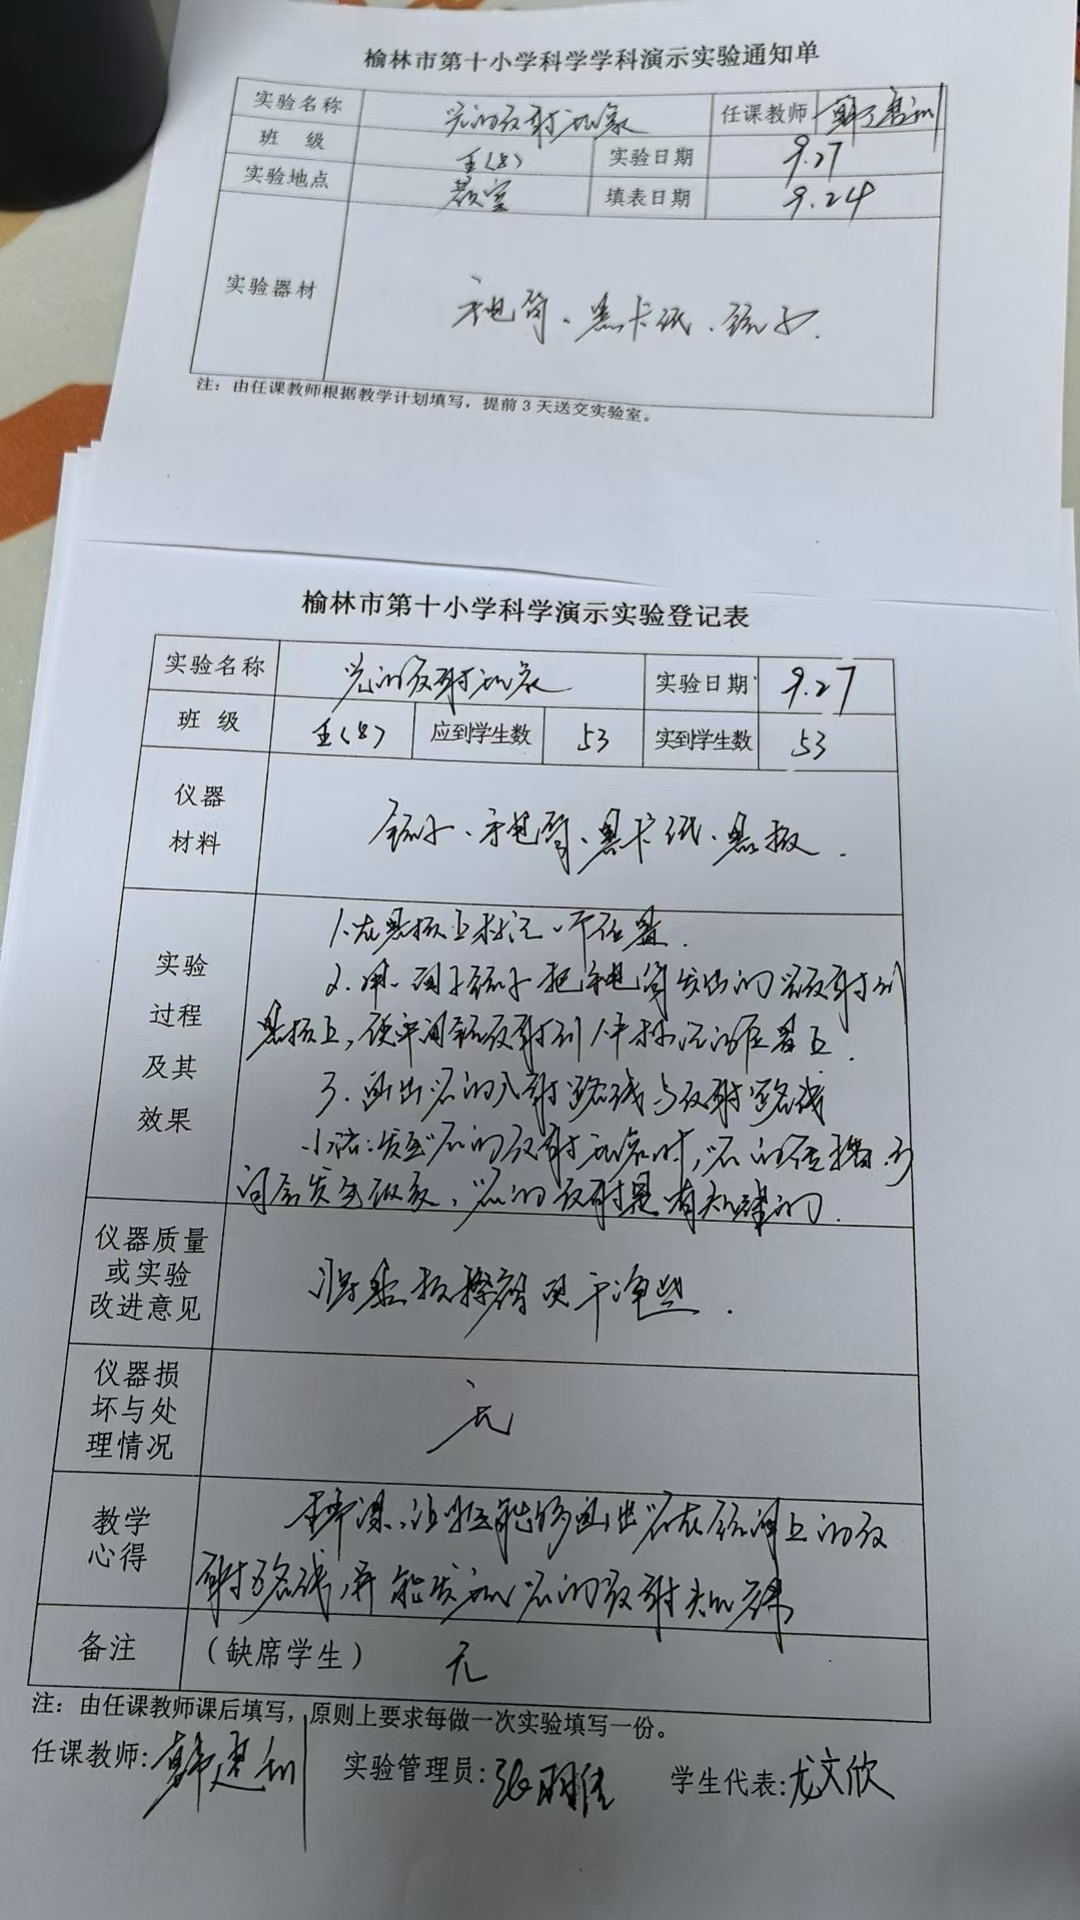 榆林市第十小学科学学科演示实验通知单
实验名称 光的反射现象 任课教师
班 级 五(8) 实验日期 9.27
实验地点 教室 填表日期 9.24
实验器材 手电筒、黑卡纸、镜子.
注：由任课教师根据教学计划填写，提前3天送交实验室。
榆林市第十小学科学演示实验登记表
实验名称 光的反射现象 实验日期 9.27
班 级 五(8) 应到学生数 53 实到学生数 53
仪器
材料
镜子、手电筒、黑卡纸、黑板.
实验
过程
及其
效果
1.在黑板上标记一个位置.
2.用 镜子把手电筒发出的光反射到
黑板上，使 反射到 标记的位置上.
3.画出光的入射路线与反射路线
小结:发生光的反射现象时,光的传播方
向会发生改变,光的反射是有规律的.
仪器质量
或实验
改进意见
黑板擦得更干净些.
仪器损
坏与处
理情况
无
教学
心得
本节课,让学生能够画出光在镜面上的反
射路线,并能发现光的反射规律
备注 （缺席学生） 无
注：由任课教师课后填写，原则上要求每做一次实验填写一份。
任课教师: 实验管理员: 学生代表:龙文欣